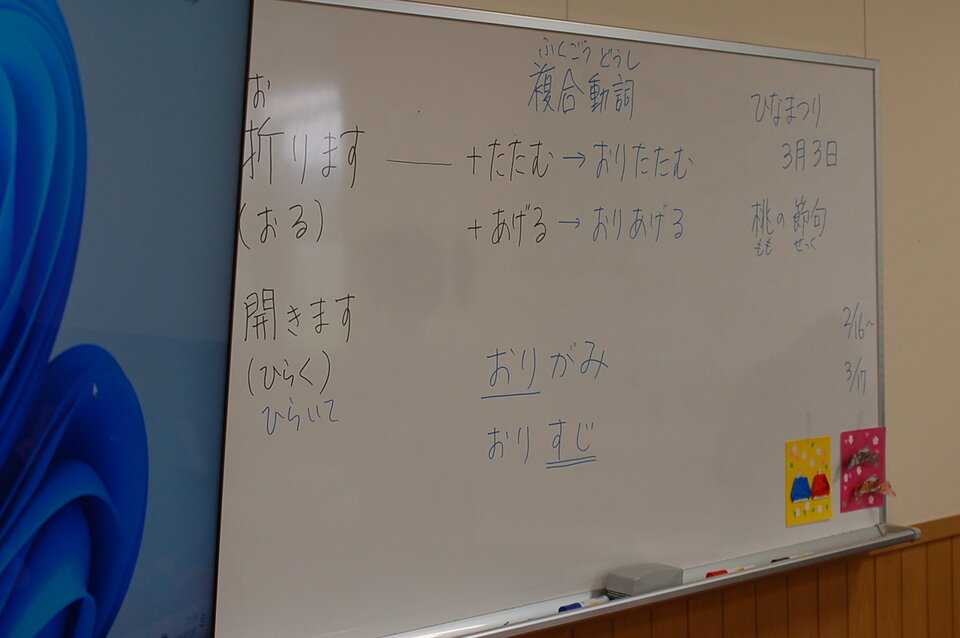 ふくごうどうし
複合動詞
お
折ります ── +たたむ → おりたたむ
(おる) +あげる → おりあげる
開きます
(ひらく)
ひらいて
おりがみ
おりすじ
ひなまつり
3月3日
桃の節句
もも ぜっく
2/16~
3/17